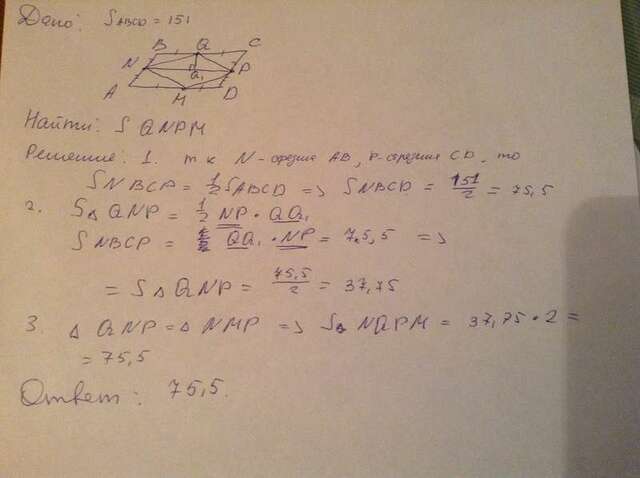 Дано: S ABCD = 151
B Q C
N Q₁ P
A M D
Найти: S QNPM
Решение: 1. т к N - середина AB, P - середина CD, то
S NBCP = 1/2 S ABCD => S NBCD = 151/2 = 75,5
2. S△ QNP = 1/2 NP · QQ₁
S NBCP = QQ₁ · NP = 75,5 =>
= S△ QNP = 75,5/2 = 37,75
3. △ QNP = △ NMP => S△ NQPM = 37,75 · 2 =
= 75,5
Ответ: 75,5.